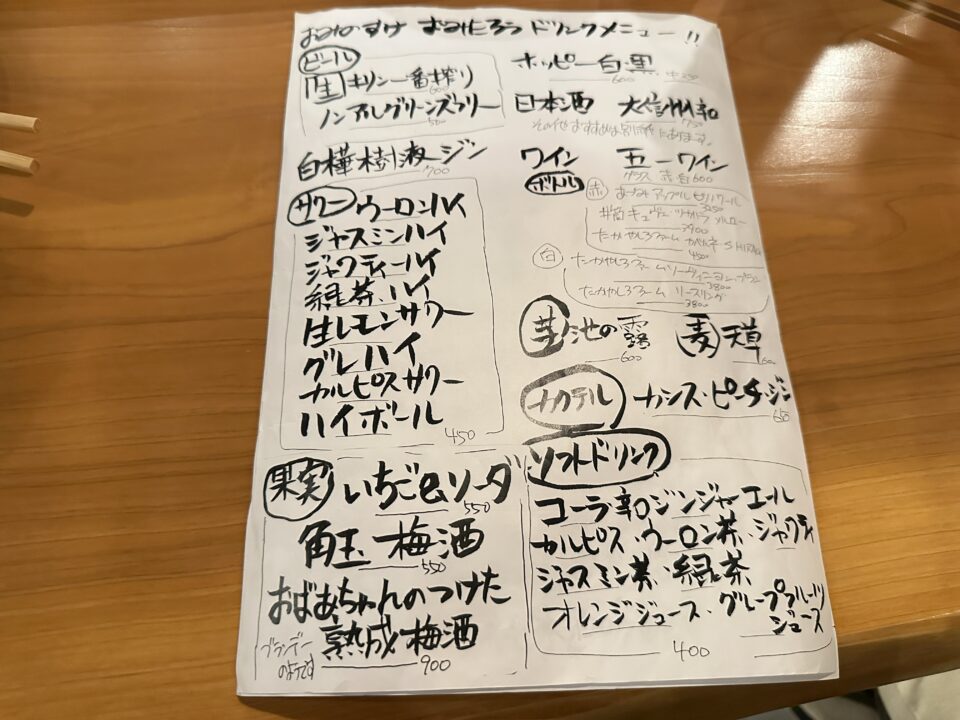 ドリンクメニュー!!
ビール
生 キリン一番搾り
600
ノンアルグリーンズフリー
500
白樺樹液ジン
700
サワー ウーロンハイ
ジャスミンハイ
ジャワティーハイ
緑茶ハイ
生レモンサワー
グレハイ
カルピスサワー
ハイボール
450
果実 いちご&ソーダ
550
角玉 梅酒
550
おばあちゃんのつけた
熟成梅酒
ブランデーのようです
900
ホッピー白・黒
600
日本酒 大信州辛口
その他おすすめは別紙にあります。
ワイン 五一ワイン
グラス 赤白 600
ボトル
赤
3250
3900
たかやしろファーム
4500
白 たかやしろファーム ソーヴィニヨン・ブラン
3800
たかやしろファーム リースリング
3800
芋 池の露
600
麦 天草
カクテル カシス・ピーチ・ジン
650
ソフトドリンク
コーラ 辛口ジンジャーエール
カルピス・ウーロン茶・ジャワティ
ジャスミン茶・緑茶
オレンジジュース・グレープフルーツ
ジュース
400